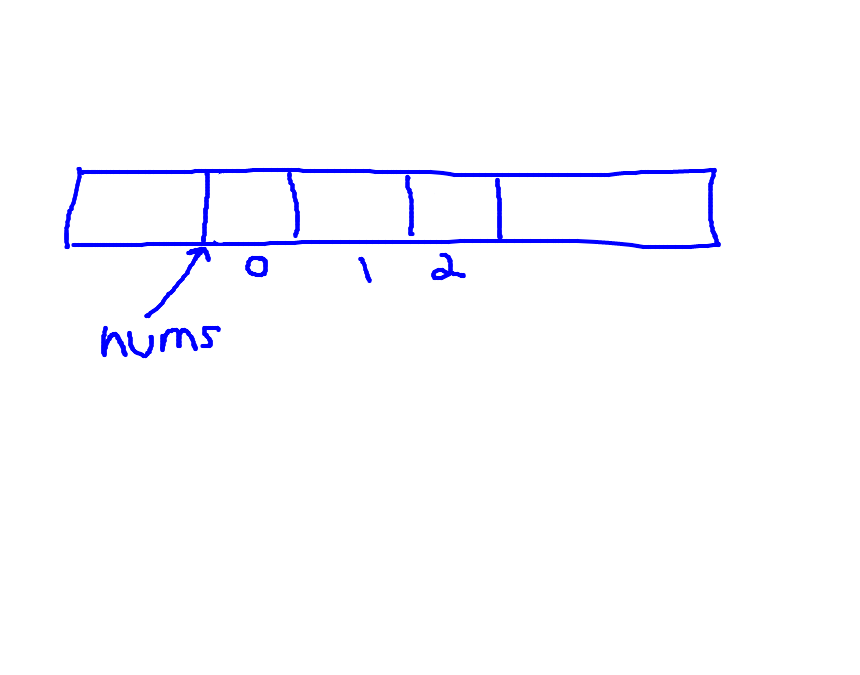 0 1 2
nums